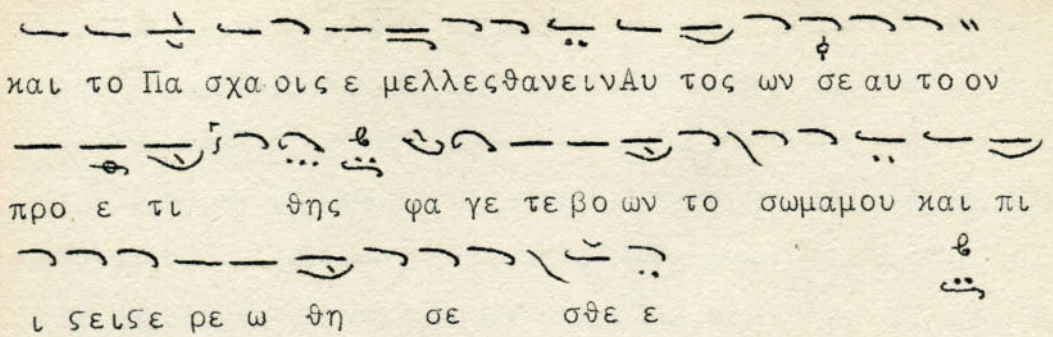 και το Πα σχα οις ε μελλες θανειν Αυ τος ων σε αυ το ον
προ ε τι θης φα γε τε βο ων το σωμα μου και πι
ι ςεις ε ρε ω θη σε σθε ε